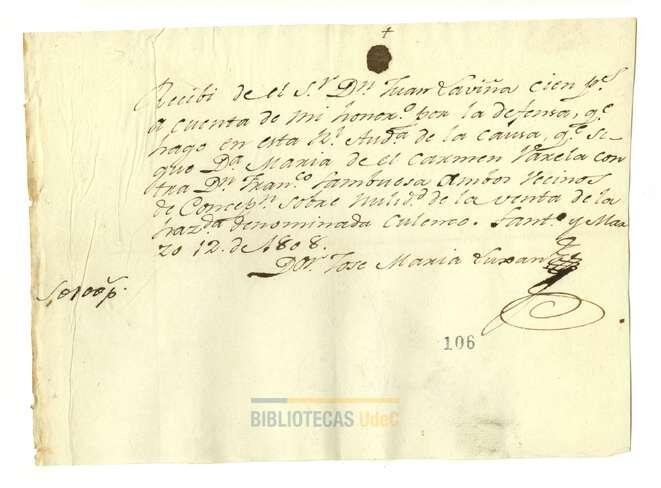 +
Recibi de el S.r D.n Juan Laviña cien p.s
a cuenta de mi honor.o por la defensa, q.e
hago en esta R.l Aud.a de la causa, q.e si-
gue D.a Maria de el Carmen Varela con
tra D.n Fran.co Sambuesa ambos vecinos
de Concep.n sobre nulid.d de la venta de la
haz.da denominada Culenco. Sant.o y Mar
zo 12. de 1808.
D.or Jose Maria Luxan
Son 100 p.
106
BIBLIOTECAS UdeC